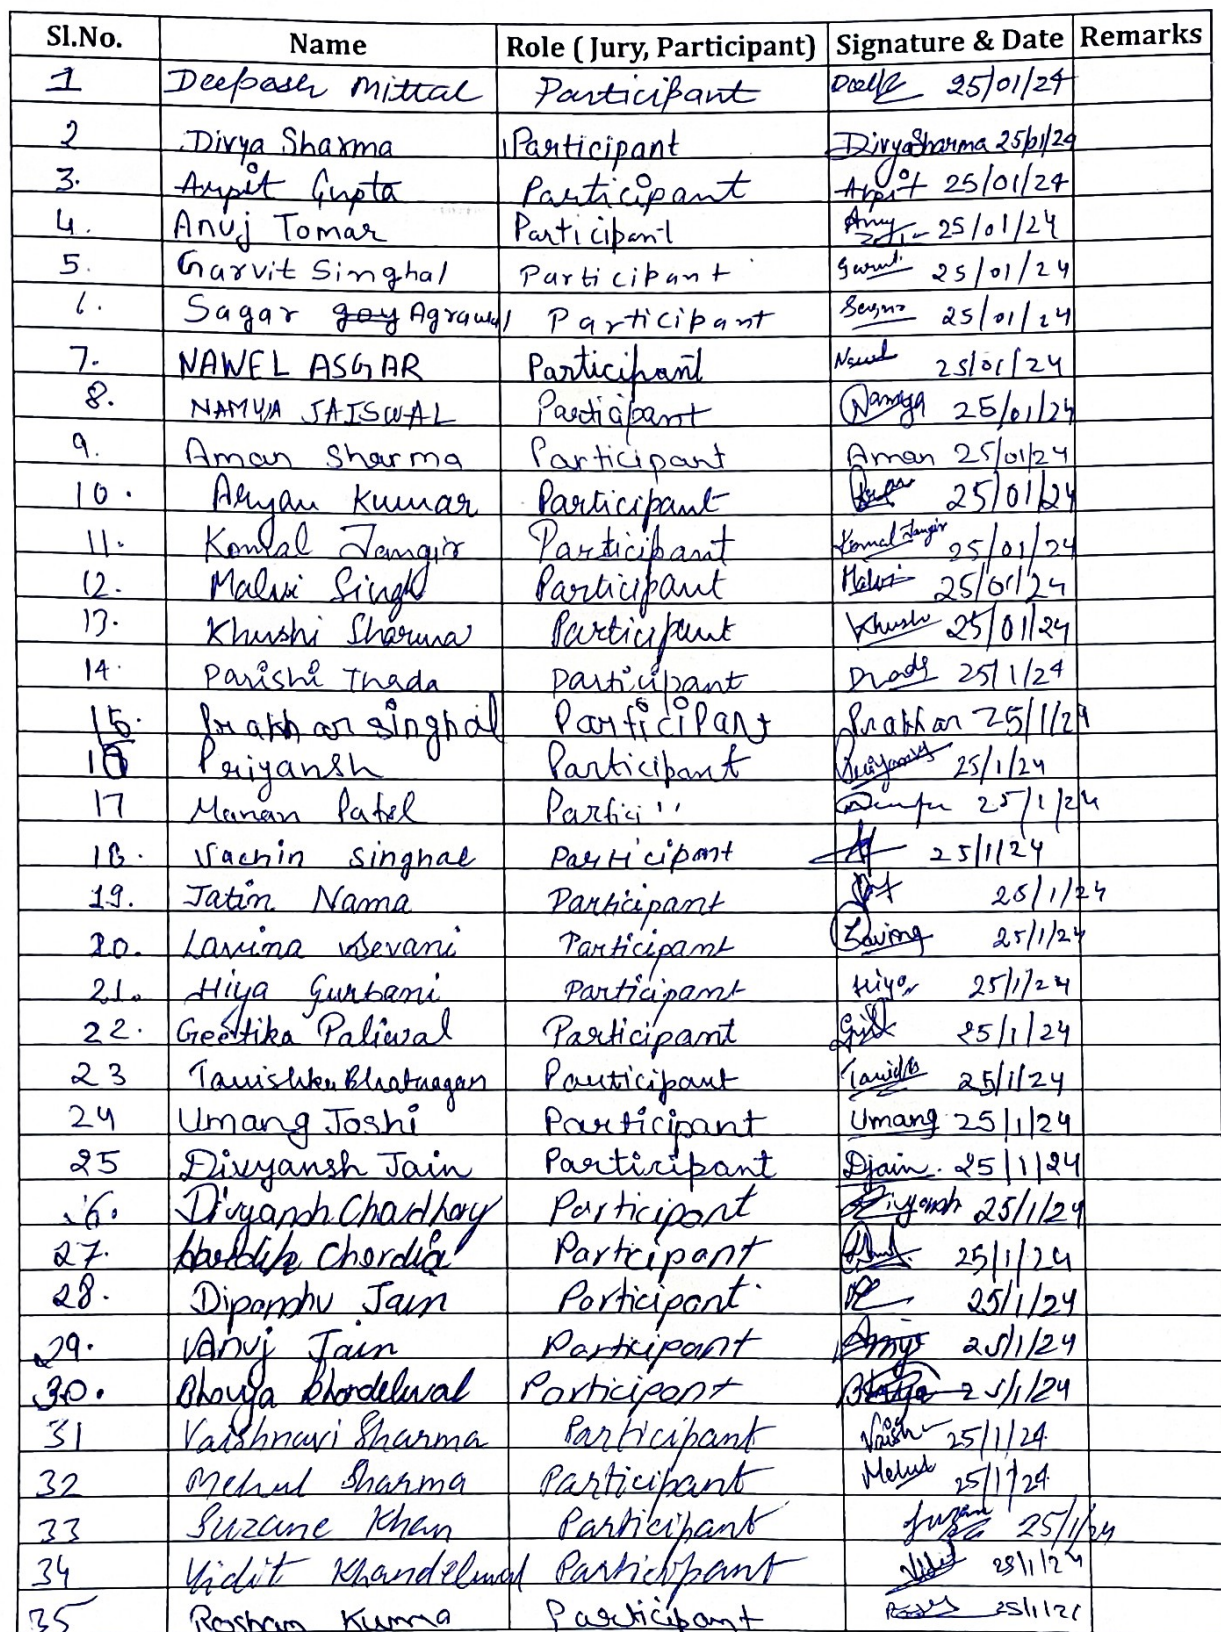 Sl.No. Name Role ( Jury, Participant) Signature & Date Remarks
1 Deepash Mittal Participant 25/01/24
2 Divya Sharma Participant DivyaSharma 25/01/24
3. Arpit Gupta Participant Arpit 25/01/24
4. Anuj Tomar Participant Anuj 25/01/24
5. Garvit Singhal Participant Garvit 25/01/24
6. Sagar goy Agrawal Participant Sagar 25/01/24
7. NAWEL ASGAR Participant Nawel 25/01/24
8. NAMYA JAISWAL Participant Namya 25/01/24
9. Aman Sharma Participant Aman 25/01/24
10. Aryan Kumar Participant 25/01/24
11. Komal Jangir Participant Komal Jangir 25/01/24
12. Malvi Singh Participant Malvi 25/01/24
13. Khushi Sharma Participant Khushi 25/01/24
14. Parishi Thada Participant 25/1/24
15. Prakhar Singhal Participant Prakhar 25/1/24
16 Priyansh Participant Priyansh 25/1/24
17 Manan Patel Partici '' 25/1/24
18. Sachin Singhal Participant 25/1/24
19. Jatin Nama Participant 25/1/24
20. Lavina Devani Participant Lavina 25/1/24
21. Hiya Gurbani Participant Hiya 25/1/24
22. Geetika Paliwal Participant 25/1/24
23 Tanishka Bhatnagar Participant 25/1/24
24 Umang Joshi Participant Umang 25/1/24
25 Divyansh Jain Participant Djain. 25/1/24
26. Divyansh Chadhary Participant Divyansh 25/1/24
27. Hardik Chordia Participant 25/1/24
28. Dipanshu Jain Participant 25/1/24
29. Anuj Jain Participant Anuj 25/1/24
30. Bhavya Khandelwal Participant Bhavya 25/1/24
31 Vaishnavi Sharma Participant Vaish 25/1/24
32 Mehul Sharma Participant Mehul 25/1/24
33 Suzane Khan Participant Suzan 25/1/24
34 Vidit Khandelwal Participant Vidit 25/1/24
35 Roshan Kumar Participant 25/1/24